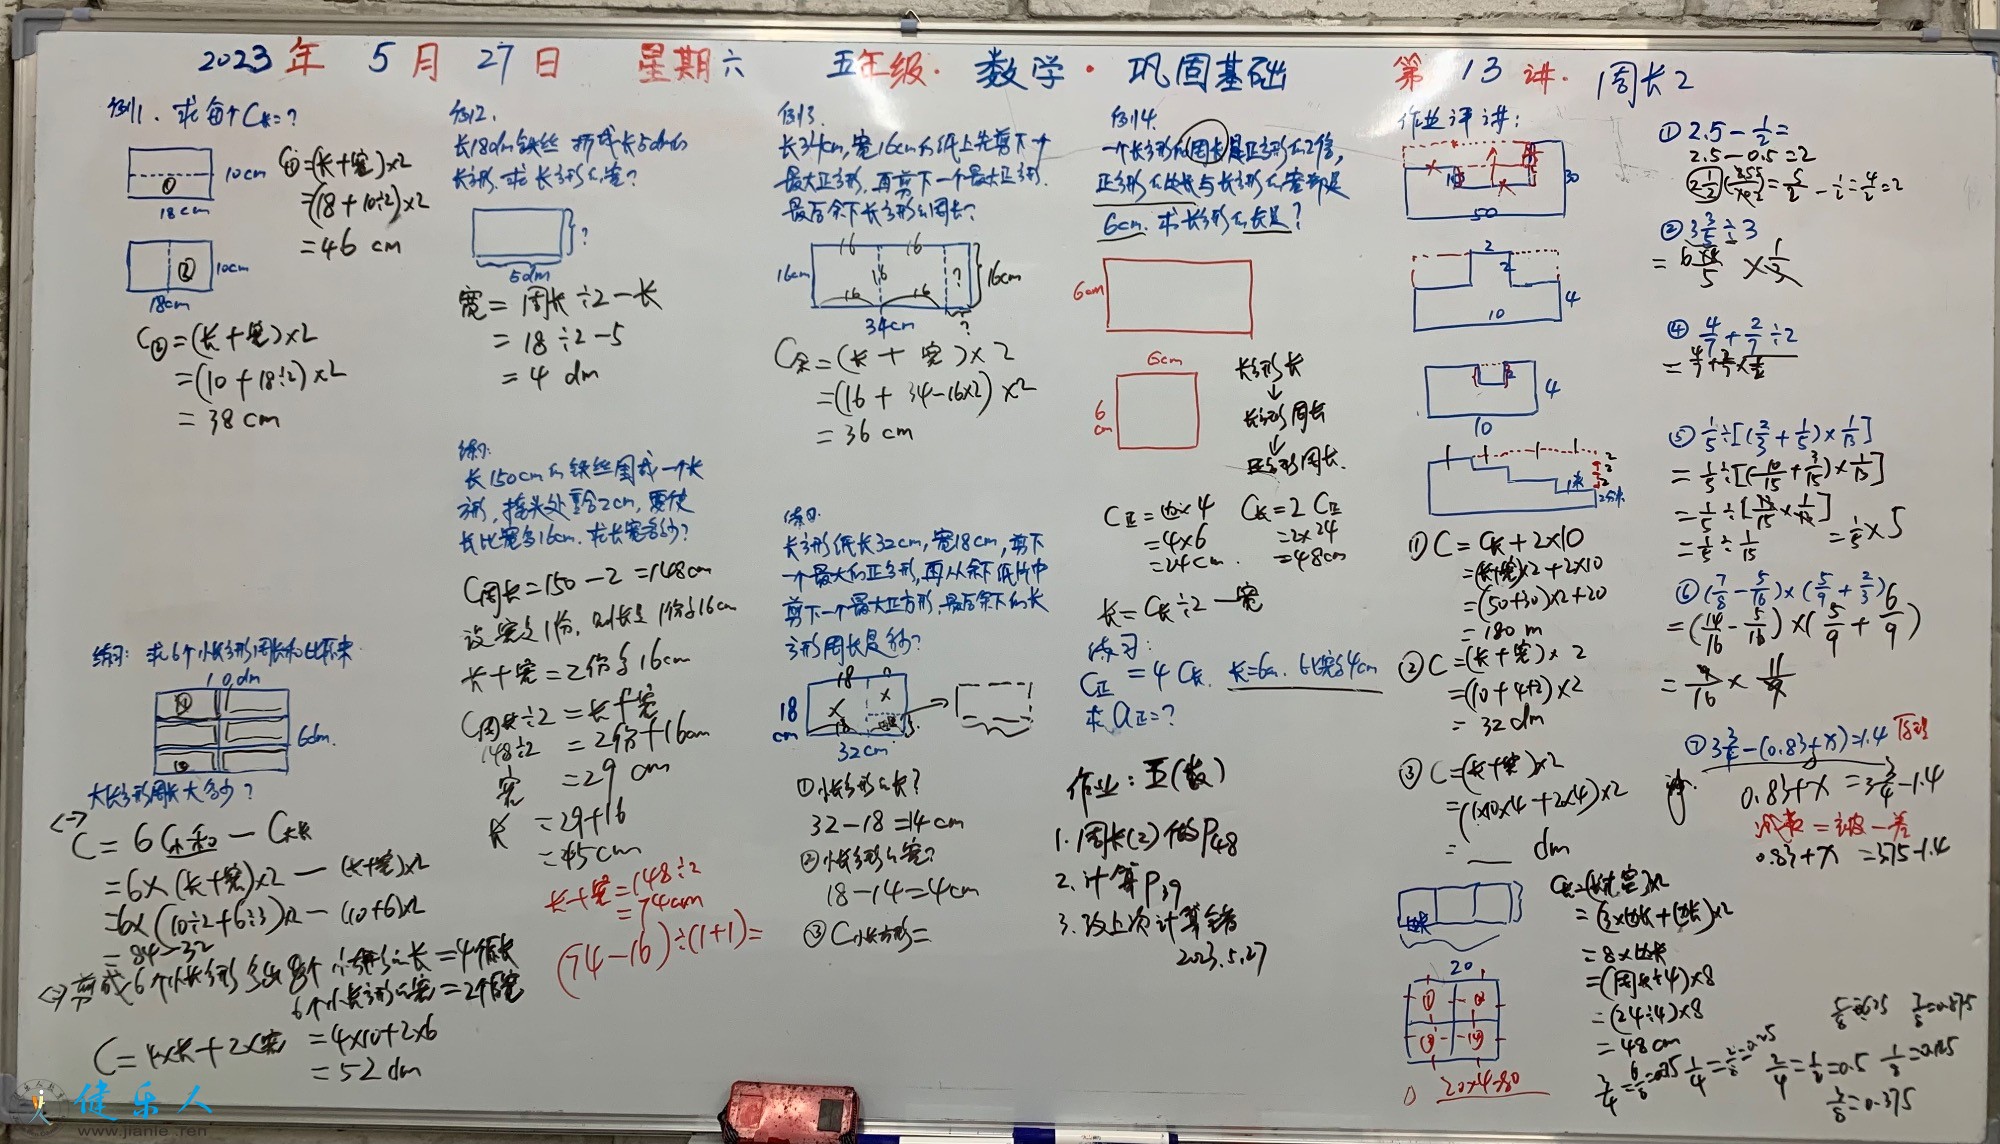 2023年 5月 27日 星期六 五年级·数学·巩固基础 第 13 讲. 周长2
例1. 求每个C长=?
10cm
①
18cm
C①=(长+宽)×2
=(18+10÷2)×2
=46 cm
②
10cm
18cm
C②=(长+宽)×2
=(10+18÷2)×2
=38 cm
练习: 求6个小长方形周长和比原来
10dm
6dm.
大长方形周长大多少?
C=6C小和-C大长
=6×(长+宽)×2-(长+宽)×2
=6×(10÷2+6÷3)×2-(10+6)×2
=84-32
剪成6个小长方形多出8个小长方形的长=4个原长
6个小长方形的宽=2个原宽
C=4×长+2×宽
=4×10+2×6
=52 dm
例2.
长18dm铁丝 折成长5dm的
长方形. 求长方形的宽?
?
5dm
宽=周长÷2-长
=18÷2-5
=4 dm
练习:
长150cm的铁丝围成一个长
方形, 接头处重合2cm, 要使
长比宽多16cm. 求长宽多少?
C周长=150-2=148cm
设宽是1份, 则长是1份多16cm
长+宽=2份多16cm
C周长÷2=长+宽
148÷2=2份+16cm
宽=29 cm
长=29+16
=45cm
长+宽=148÷2
=74cm
(74-16)÷(1+1)=
例3.
长34cm, 宽16cm的纸上先剪下一个
最大正方形, 再剪下一个最大正方形.
最后余下长方形的周长?
16 16
16cm
16
?
16cm
16 16
34cm
?
C余=(长+宽)×2
=(16+34-16×2)×2
=36 cm
练习:
长方形纸长32cm, 宽18cm, 剪下
一个最大的正方形, 再从余下纸片中
剪下一个最大正方形. 最后余下的长
方形周长是多少?
18
18
cm
18
32cm
①小长方形的长?
32-18=14cm
②小长方形的宽?
18-14=4cm
③C小长方形=
例4.
一个长方形的周长是正方形的2倍,
正方形的边长与长方形的宽都是
6cm. 求长方形的长是?
6cm
6cm
6
cm
长方形长
↓
长方形周长
↓
正方形周长.
C正=边×4
=4×6
=24cm.
C长=2 C正
=2×24
=48cm
长=C长÷2-宽
练习:
C正=4C长. 长=6cm. 比宽多4cm
求a正=?
作业: 五(数)
1. 周长(2) 做P48
2. 计算P39
3. 改上次计算错
2023.5.27
作业评讲:
10
30
50
2
2
4
10
2
4
10
2
2
2
1米
2分米
①C=C长+2×10
=(长+宽)×2+2×10
=(50+30)×2+20
=180 m
②C=(长+宽)×2
=(10+4+2)×2
=32 dm
③C=(长+宽)×2
=(1×10×4+2×4)×2
=___ dm
边长
C长=(长+宽)×2
=(3×边长+边长)×2
=8×边长
=(周长÷4)×8
=(24÷4)×8
=48cm
20
20×4=80
①2.5-1/2=
2.5-0.5=2
②3 3/5÷3
④4/7+2/7÷2
=4/7+2/7×1/2
⑤1/5÷[(2/3+1/5)×1/13]
=1/5÷[(10/15+3/15)×1/13]
=1/5÷[13/15×1/13]
=1/5÷1/15
=1/5×5
⑥(7/8-5/16)×(5/9+2/3)
=(14/16-5/16)×(5/9+6/9)
=9/16×11/9
⑦3 3/4-(0.83+x)=1.4
0.83+x=3 3/4-1.4
减数=被-差
0.83+x=3.75-1.4
5/8=0.625 7/8=0.875
3/4=6/8=0.75 1/4=2/8=0.25 2/4=1/2=0.5 1/8=0.125
3/8=0.375
健乐人
www.jianle.ren